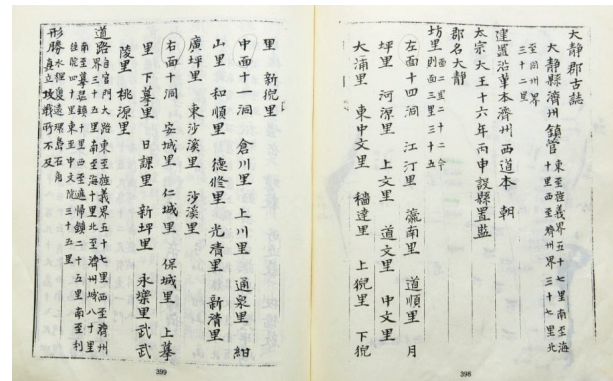 大靜郡古誌
大靜縣濟州鎭管 東至旌義界五十七里南至海
十里西至濟州界三十七里北
至同州界
三十二里
建置沿革本濟州西道本 朝
太宗大王十六年丙申設縣置監
郡名大靜
坊里 面二里二十二今
則面三里三十五
左面十四洞 江汀里 瀛南里 道順里 月
坪里 河源里 道文里 中文里
大浦里 東中文里 穡達里 上猊里 下猊
398
里 新猊里
中面十一洞 倉川里 上川里 通泉里 紺
山里 和順里 德修里 光淸里 新淸里
廣坪里 東沙溪里 沙溪里
右面十洞 安城里 仁城里 保城里 上摹
里 下摹里 日課里 新坪里 永樂里武武
陵里 桃源里
道路 自官門大路東至旌義界五十七里西至濟州
界三十五里南至海十里北至濟州城八十里
南至摹瑟鎭十里西至遮歸鎭二十五里南至利
往院四十里東至文院三十五里
形勝 水程險遠環島石角
矗立攻戰所不及
399